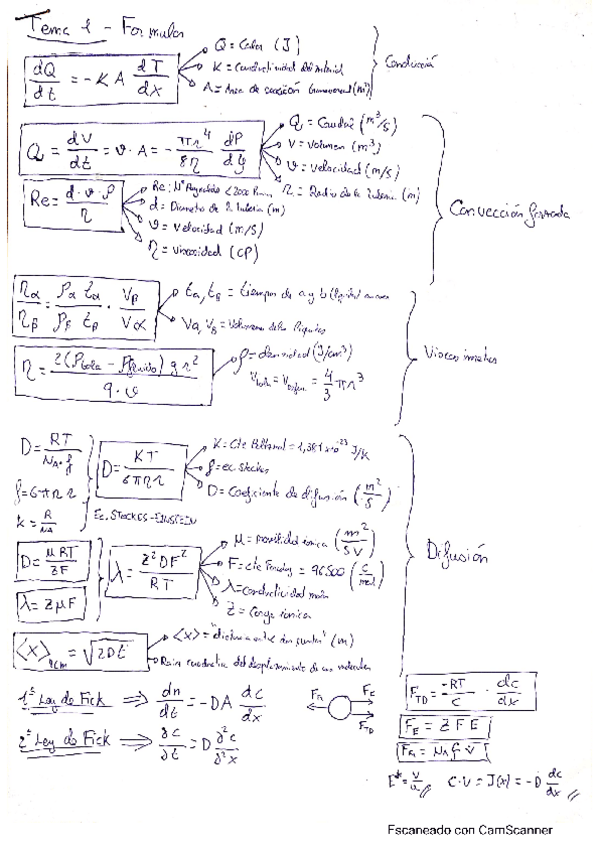 Tema 1 - Formulas
dQ/dt = -K A dT/dx
Q = Calor (J)
K = Conductividad del material
A = Area de sección transversal (m²)
Conducción
Q = dV/dt = v · A = - πr⁴/8η dP/dy
Q = Caudal (m³/s)
V = Volumen (m³)
v = velocidad (m/s)
r = Radio de la tuberia (m)
Re = d · v · ρ / η
Re: Nº Reynolds < 2000
d = Diametro de la tuberia (m)
v = velocidad (m/s)
η = viscosidad (CP)
Convección forzada
ηα/ηβ = ρα tα/ρβ tβ · Vβ/Vα
ta, tb = tiempos de a y b
Va, Vb = Volumenes de los liquidos
η = 2(ρbola - ρfluido) g r² / 9 · v
ρ = densidad (g/cm³)
Vbola = Vesfera = 4/3 πr³
Viscosimetros
D = RT / NA · f
f = 6πηr
k = R/NA
D = KT / 6πηr
Ec. STOCKES-EINSTEIN
K = Cte Boltzmal = 1,381x10⁻²³ J/K
f = ec. Stockes
D = Coeficiente de difusión (m²/s)
D = μRT / ZF
λ = ZμF
λ = Z²DF² / RT
μ = movilidad iónica (m²/SV)
F = cte Faraday = 96500 (C/mol)
λ = conductividad molar
Z = Carga iónica
Difusión
<x>rcm = √2Dt
<x> = "distancia entre dos puntos" (m)
Raiz cuadratica del desplazamiento de las moleculas
1ª Ley de Fick ⟹ dn/dt = -DA dc/dx
2ª Ley de Fick ⟹ ∂c/∂t = D ∂²c/∂²x
FR FE FTD
FTD = -RT/C · dc/dx
FE = Z F E
FR = NA f v
C·V = J(x) = -D dc/dx
Escaneado con CamScanner